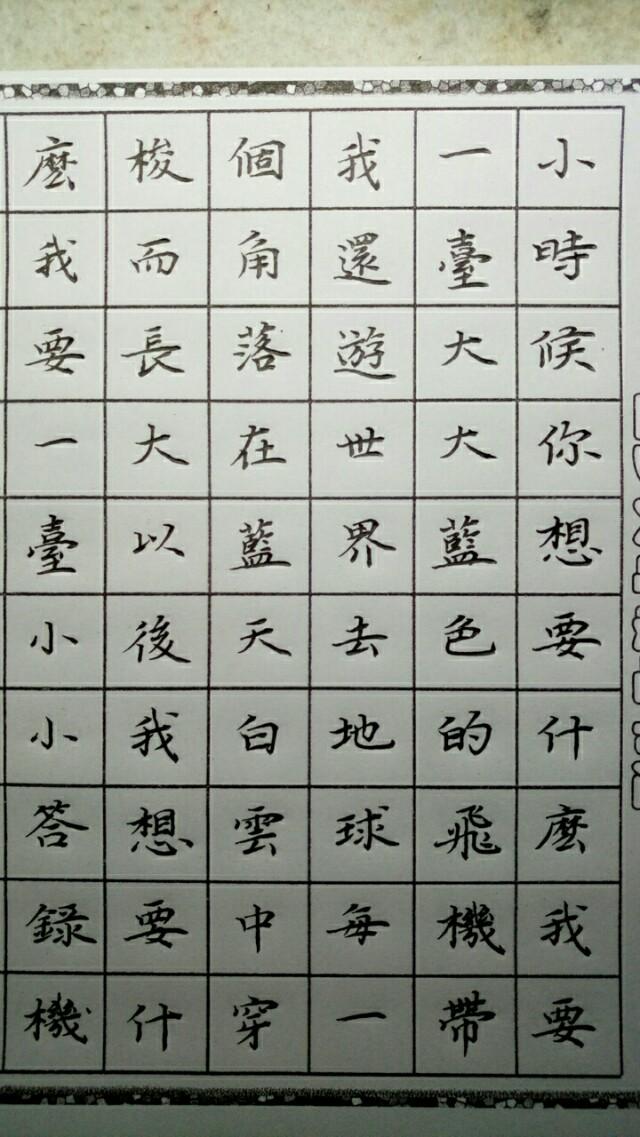 小時候你想要什麽我要
一臺大大藍色的飛機帶
我還遊世界去地球每一
個角落在藍天白雲中穿
梭而長大以後我想要什
麽我要一臺小小答錄機